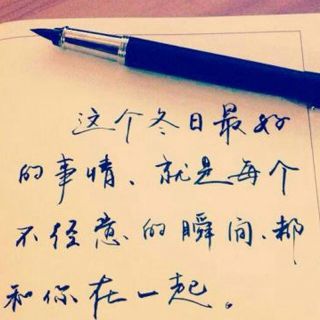 这个冬日最好
的事情、就是每个
不经意的瞬间、都
和你在一起。